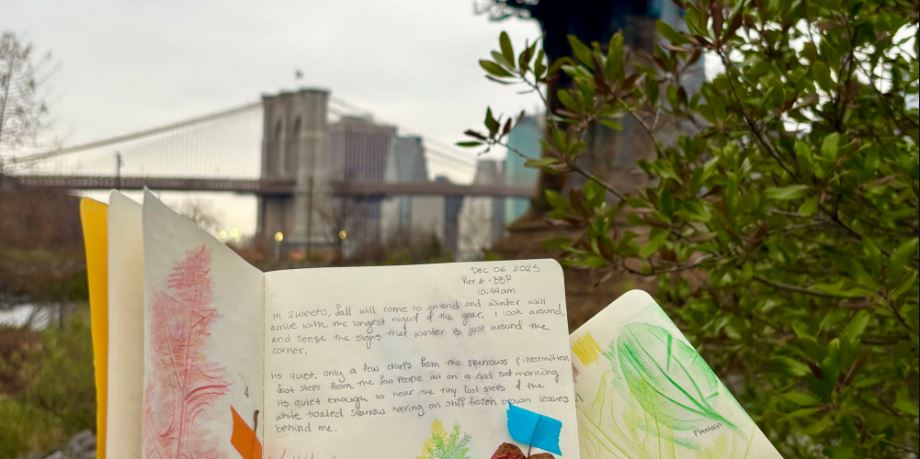 Dec 06 2025
Pier 6 • BBP
10:44am
In 2 weeks, fall will come to an end and winter will
arrive with the longest night of the year. I look around
and sense the signs that winter is just around the
corner.
Its quiet, only a few chirps from the sparrows & intermitten
foot steps from the few people out on a cold sat morning
Its quiet enough to hear the tiny foot steps of the
white troated sparrow hopping on stiff frozen brown leaves
behind me.
Plantain